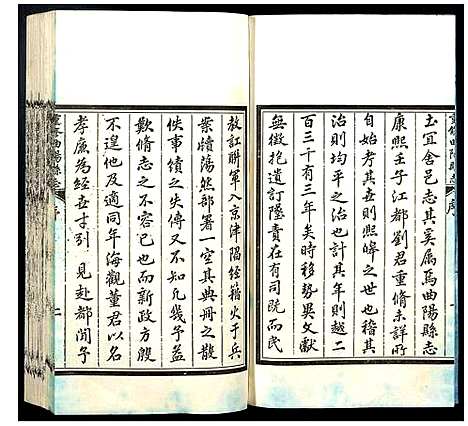 重修曲陽縣志
序
土宜舍邑志其奚屬焉曲陽縣志
康熙壬子江都劉君重脩未詳所
自始考其世則熙皞之世也稽其
治則均平之治也計其年則越二
百三十有三年矣時移勢異文獻
無徵抱遺訂墜責在有司既而民
教訌聯軍入京津陷經籍火于兵
案牘蕩然部署一空其典冊之散
佚事績之失傳又不知凡幾予益
歎脩志之不容已也而新政方殷
不遑他及適同年海觀董君以名
孝廉為經世才引見赴都聞予
重修曲陽縣志
序
二